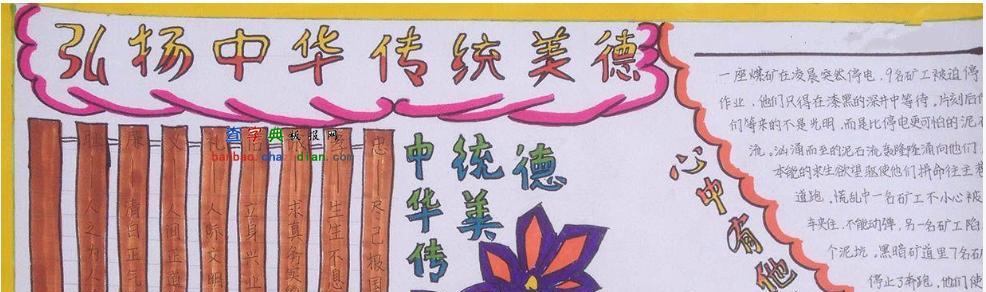 弘扬中华传统美德
查字典板报网
banbao.chazidian.com
忠 尽己报国
生生不息
求真务实
立身兴业
礼 人际文明
义 人间正道
廉 清白正气
耻 人之为人
中华传
统美
德
心中有他
一座煤矿在凌晨突然停电,9名矿工被迫停
作业,他们只得在漆黑的深井中等待。片刻后
们等来的不是光明,而是比停电更可怕的泥石
流。汹涌而至的泥石流轰隆隆涌向他们,
本能的求生欲望驱使他们拼命往主巷
道跑,慌乱中一名矿工不小心被
车夹住,不能动弹,另一名矿工陷
个泥坑,黑暗矿道里了名矿
停止了奔跑,他们使